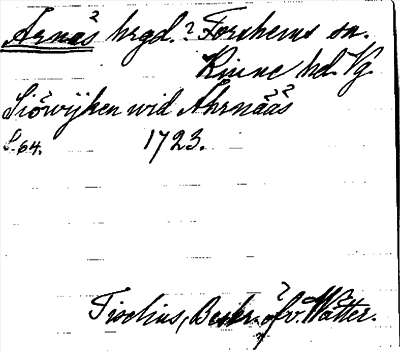 Årnäs hrgd. i Forshems sn.
Kinne hd. Vg.
Siöwijken wid Åhrnääs
S. 64. 1723.
Tiselius, Beskr. öfv. Wätter.